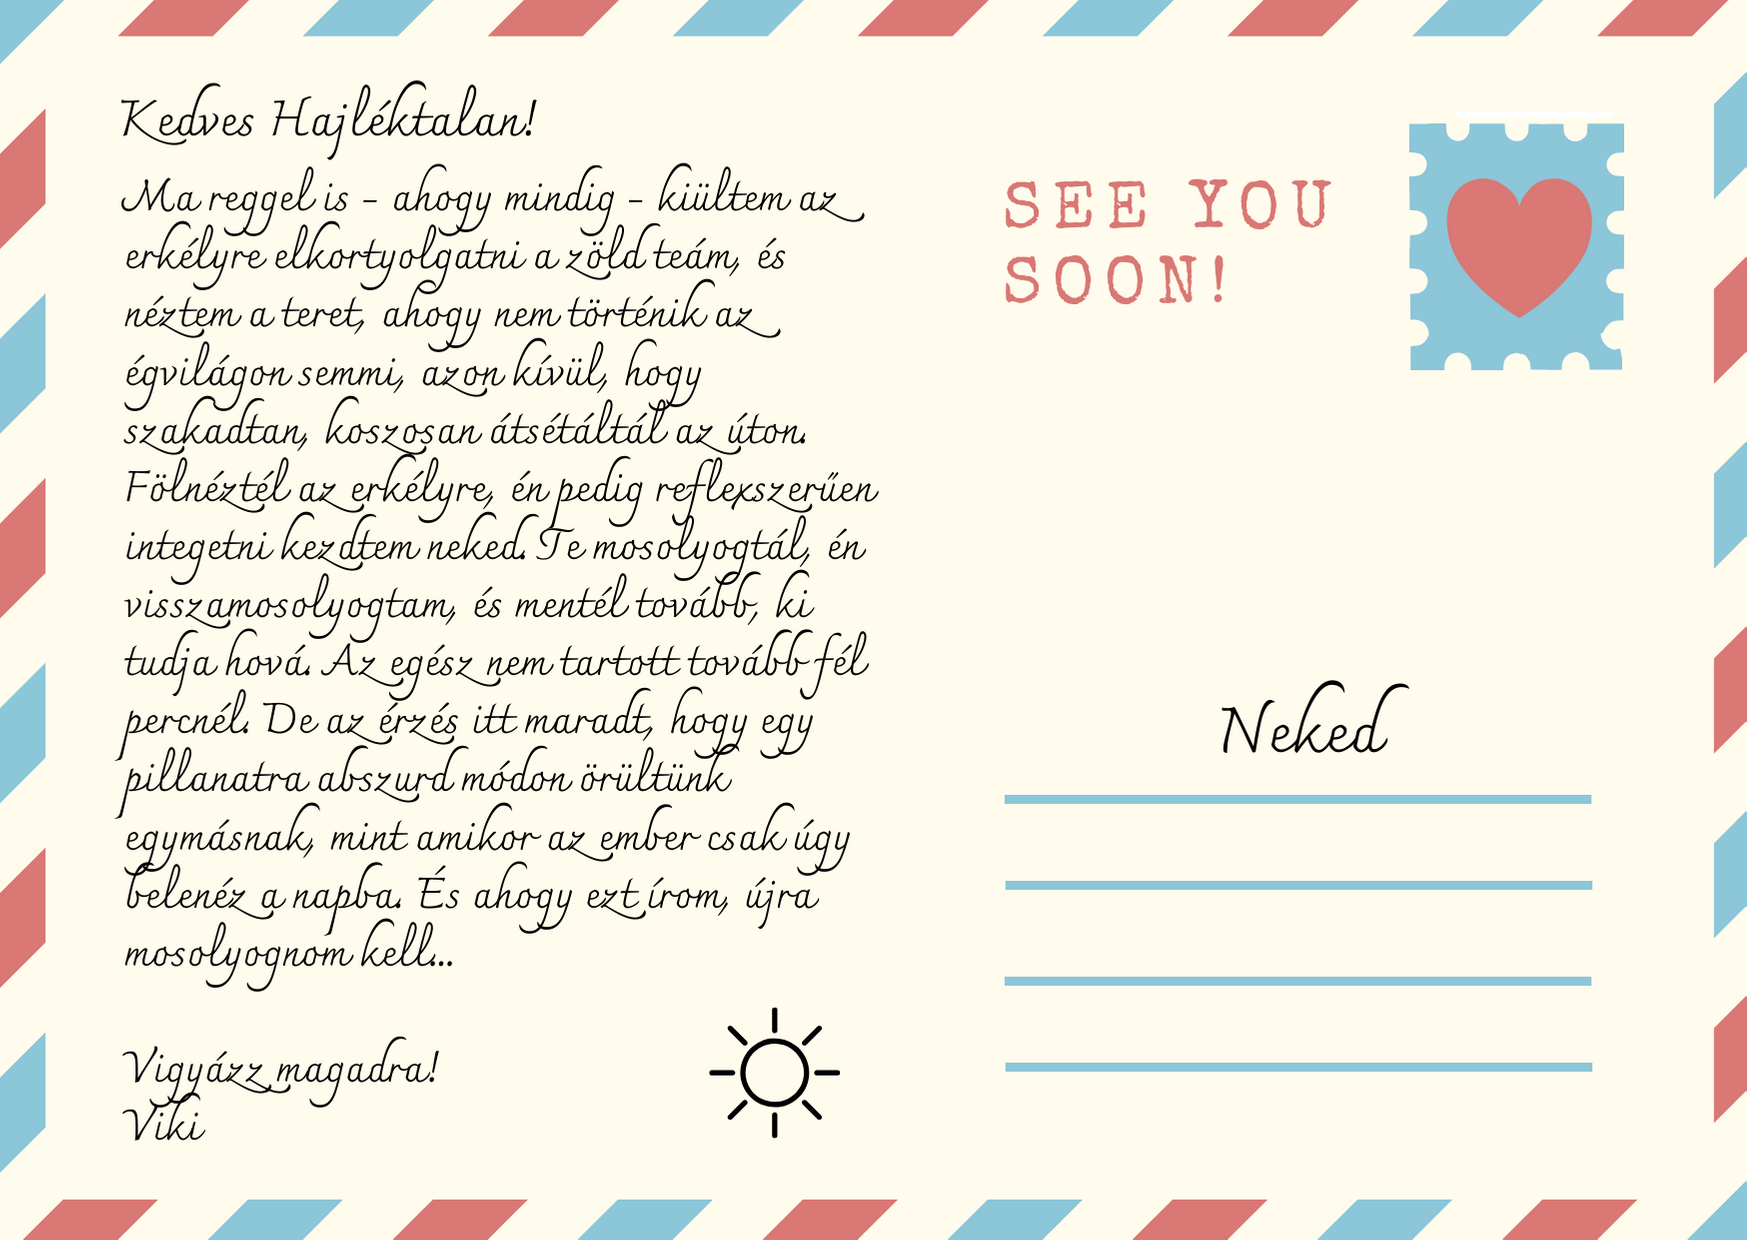 Kedves Hajléktalan!
Ma reggel is - ahogy mindig - kiültem az
erkélyre elkortyolgatni a zöld teám, és
néztem a teret, ahogy nem történik az
égvilágon semmi, azon kívül, hogy
szakadtan, koszosan átsétáltál az úton.
Fölnéztél az erkélyre, én pedig reflexszerűen
integetni kezdtem neked. Te mosolyogtál, én
visszamosolyogtam, és mentél tovább, ki
tudja hová. Az egész nem tartott tovább fél
percnél. De az érzés itt maradt, hogy egy
pillanatra abszurd módon örültünk
egymásnak, mint amikor az ember csak úgy
belenéz a napba. És ahogy ezt írom, újra
mosolyognom kell...
Vigyázz magadra!
Viki
SEE YOU
SOON!
Neked